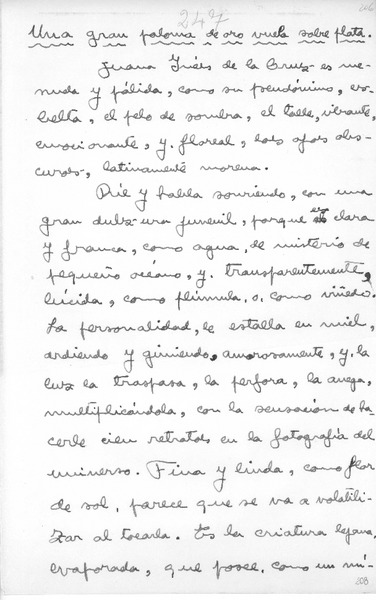 206
247
Una gran paloma de oro vuela sobre plata.
Juana Inés de la Cruz es me-
nuda y pálida, como su pseudónimo, es-
belta, el pelo de sombra, el talle, vibrante,
emocionante, y, floreal, los ojos obs-
curos, latinamente morena.
Ríe y habla sonriendo, con una
gran dulzura juvenil, porque es clara
y franca, como agua, de misterio de
pequeño océano, y, transparentemente,
lúcida, como plúmula, o, como viñedo.
La personalidad, le estalla en miel,
ardiendo y gimiendo, amorosamente, y, la
luz la traspasa, la perfora, la anega,
multiplicándola, con la sensación de ha-
cerle cien retratos en la fotografía del
universo. Fina y linda, como flor
de sol, parece que se va a volatili-
zar al tocarla. Es la criatura lejana,
evaporada, que posee, como un mí-
208